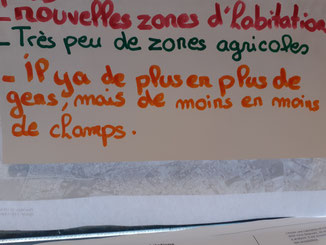 - nouvelles zones d'habitation
- Très peu de zones agricoles
- Il y a de plus en plus de
gens, mais de moins en moins
de champs.